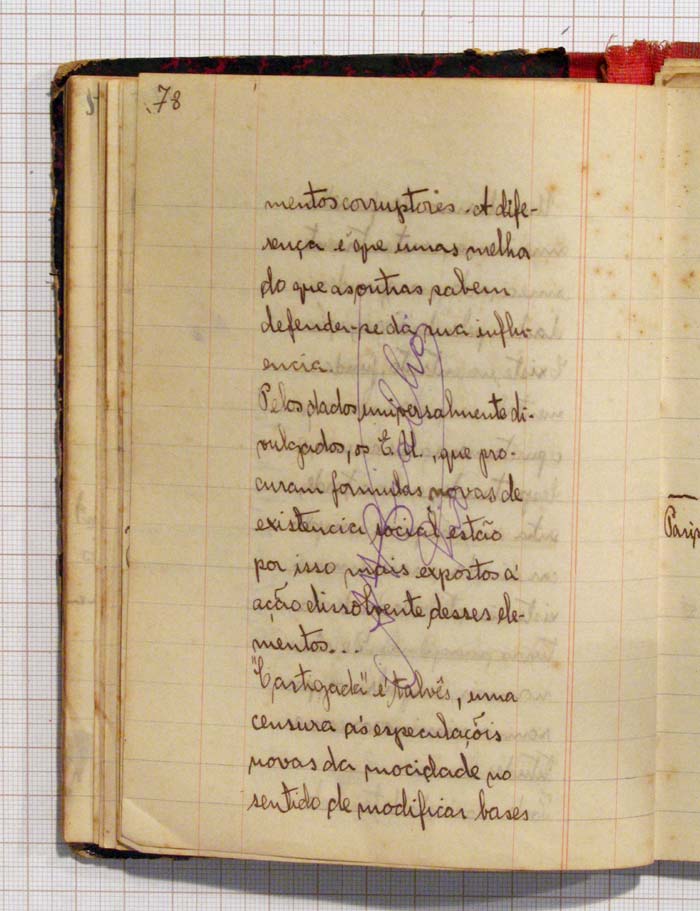 78
mentos corruptores. A dife-
rença é que umas melho
do que as outras sabem
defender-se da sua influ-
encia.
Pelos dados universalmente di-
vulgados, os E. U., que pro-
curam formulas novas de
existencia social estão
por isso mais expostos á
ação dissolvente desses ele-
mentos...
"Castigada" é talvês, uma
censura ás especulações
novas da mocidade no
sentido de modificar bases